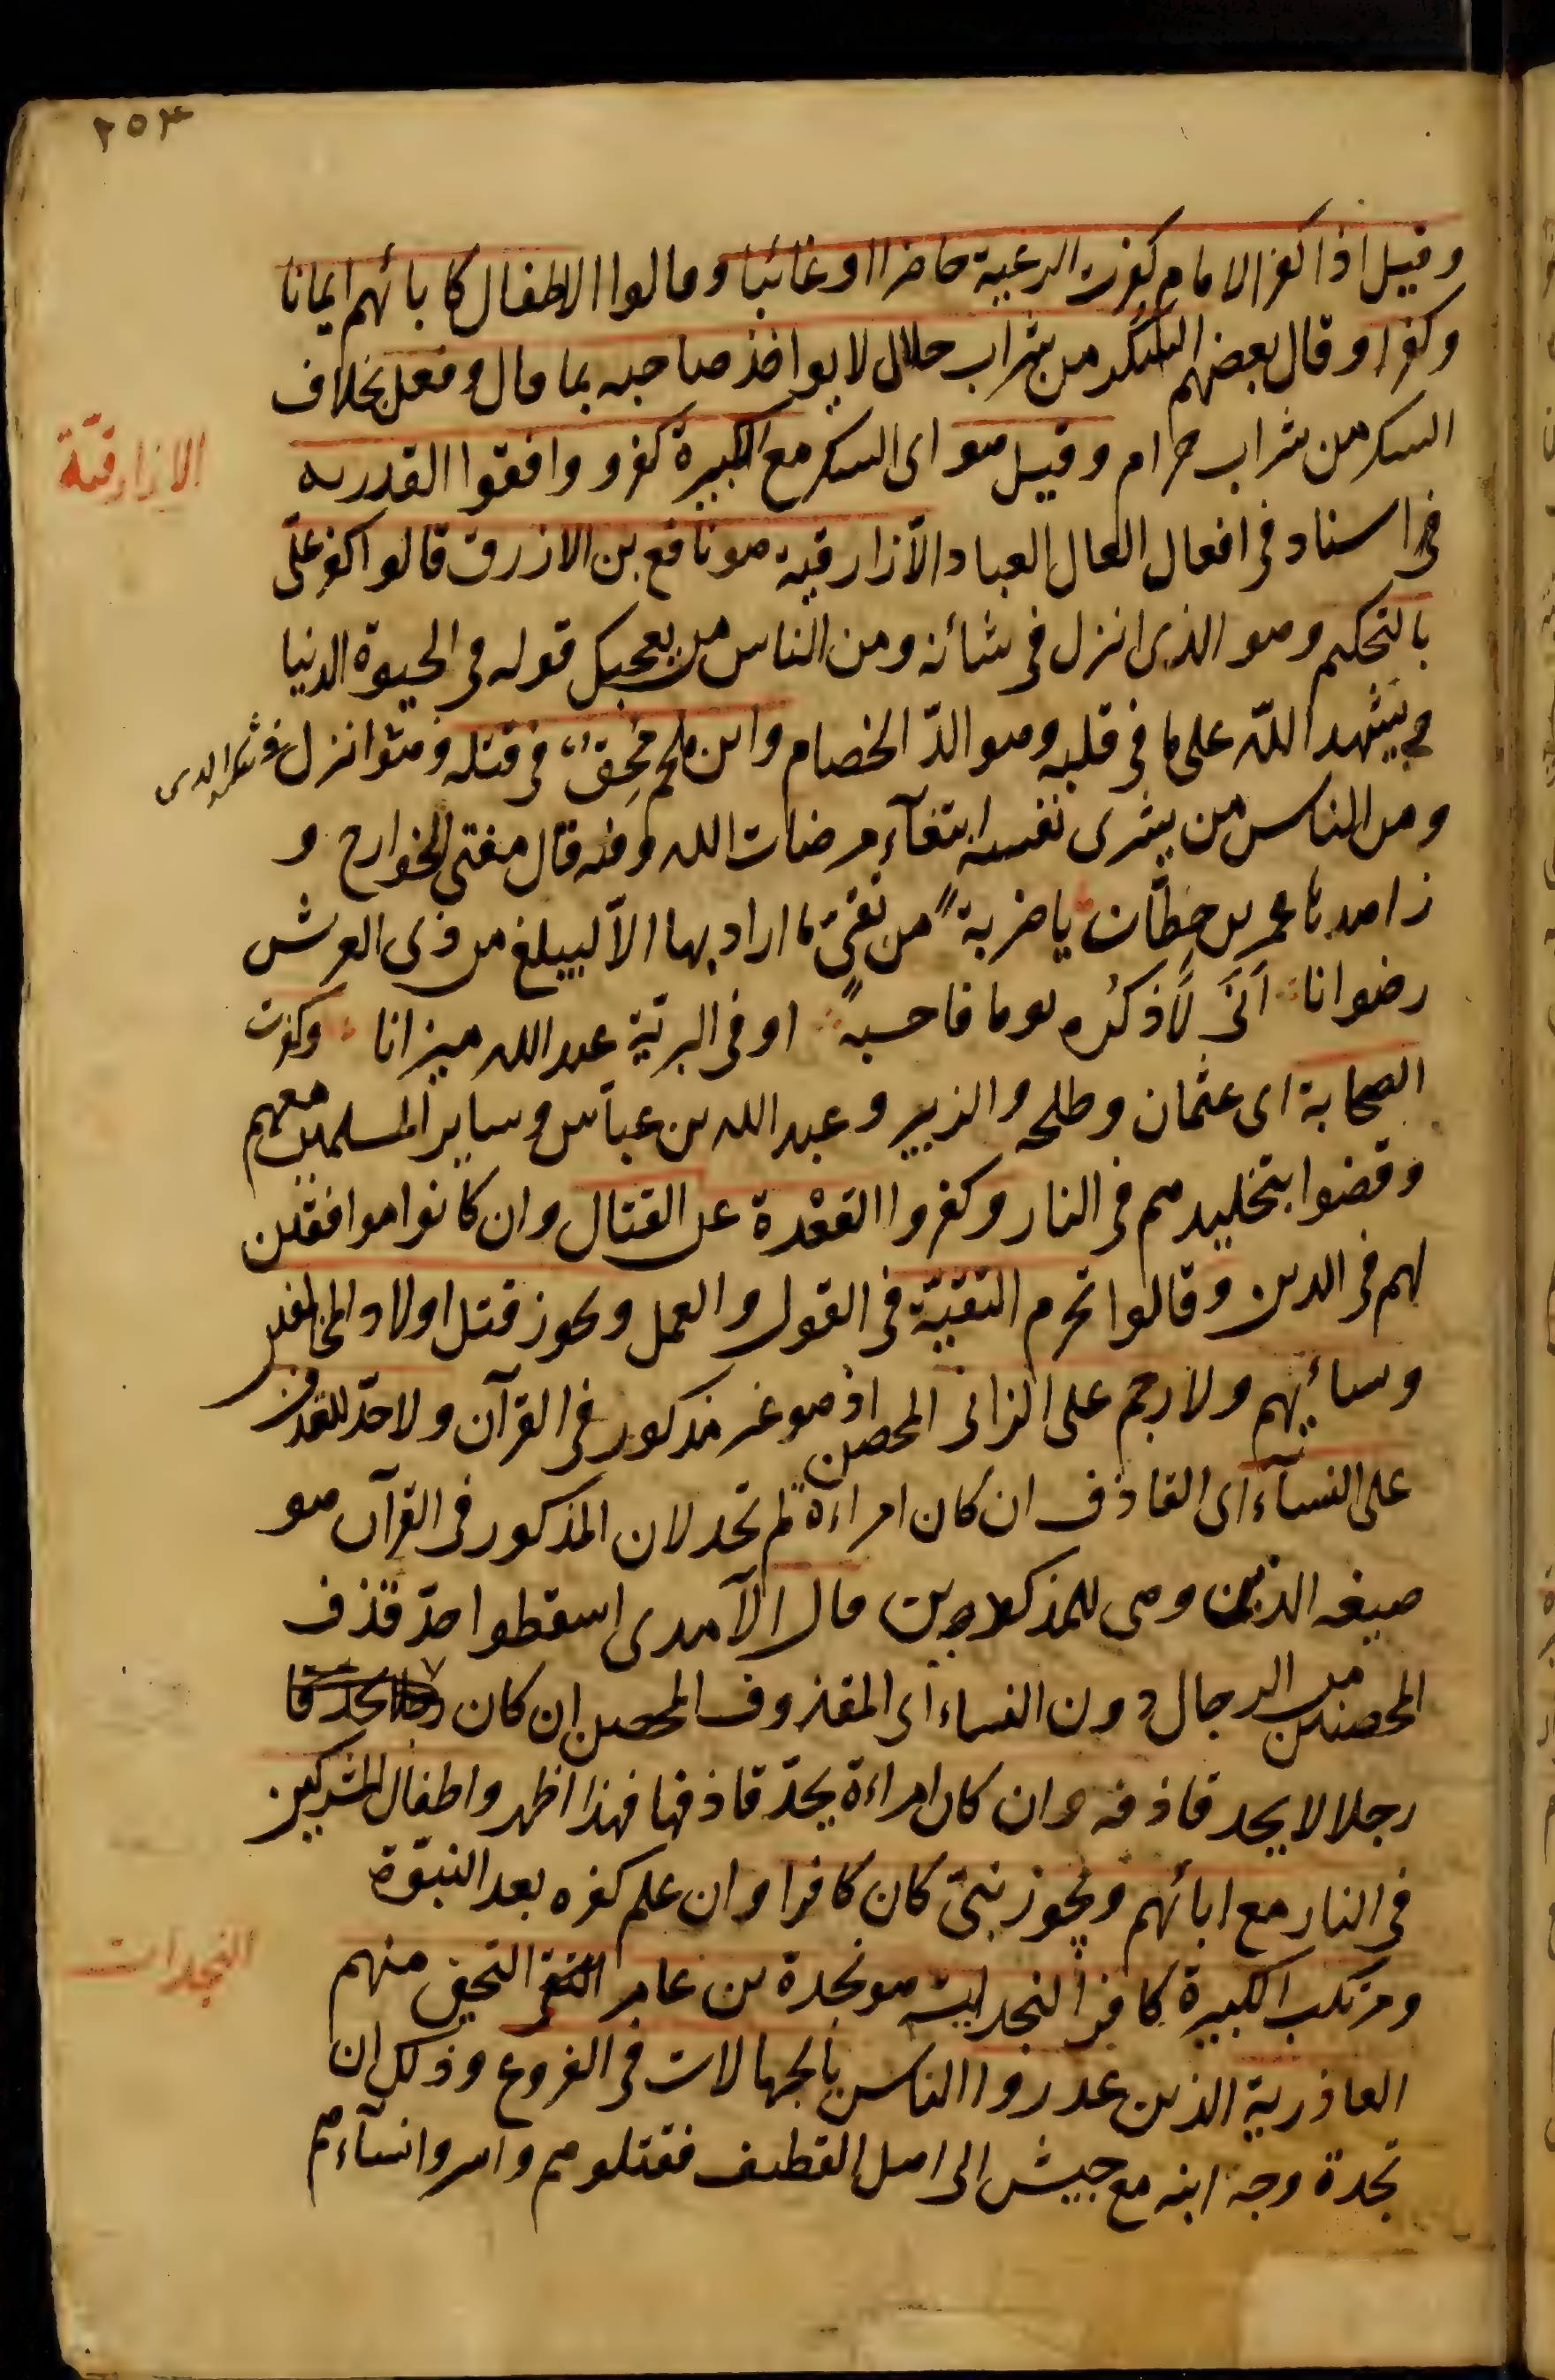 ٢٥٣
وقيل اذا كفر الامام كفرت الرعية حاضرا او غائبا وقالوا الاطفال كابائهم ايمانا
وكفرا وقال بعضهم السكر من شراب حلال لا يواخذ صاحبه بما قال وفعل بخلاف
السكر من شراب حرام وقيل هو اى السكر مع الكبيرة كفر و وافقوا القدريه
الازارقيّة
فى اسناد فى افعال العباد الأزارقية هو نافع بن الازرق قالوا كفر علىّ
بالتحكيم وهو الذى انزل فى شأنه ومن الناس من يعجبك قوله فى الحيوة الدنيا
ويشهد اللّه على ما فى قلبه وهو الدّ الخصام وابن ملجم مُحِقّ فى قتله وهو انزل فى شانه
ومن الناس من يشرى نفسه ابتغآء مرضات الله وفيه قال مفتى الخوارج و
زاهدها عمر بن حِطّان يا ضربةً من تقىّ ما اراد بها الّا ليبلغ من ذى العرش
رضوانا انّى لَأذكُره يوما فاحسبه اوفى البريّة عند الله ميزانا وكفرت
الصحابة اى عثمان وطلحه والزبير وعبد الله بن عباس وساير المسلمين معهم
وقضوا بتخليدهم فى النار وكفروا القعْدة عن القتال وان كانوا موافقين
لهم فى الدين وقالوا تحرم التقيّة فى القول والعمل ويجوز قتل اولاد المخالفين
ونسائهم ولا رجم على الزانى المحصن اذ هو غير مذكور فى القرآن ولا حدّ للقذف
على النسآء اى القاذف ان كان امراءة لم تحد لان المذكور فى القرآن هو
صيغه الذين وهى للمذكرين قال الآمدى اسقطوا حدّ قذف
المحصنين من الرجال دون النساء اى المقذوف المحصن ان كان
رجلا لا يحد قاذفه وان كان امراءة يحدّ قاذفها فهذا اظهر واطفال المشركين
فى النار مع ابائهم ويجوز نبىّ كان كافرا وان علم كفره بعد النبوّة
النجدات
ومرتكب الكبيرة كافر النجدات هو نجدة بن عامر النخعى منهم
العاذرية الذين عذروا الناس بالجهالات فى الفروع وذلك ان
نجدة وجه ابنه مع جيش الى اهل القطيف فقتلوهم واسروا نسآءهم